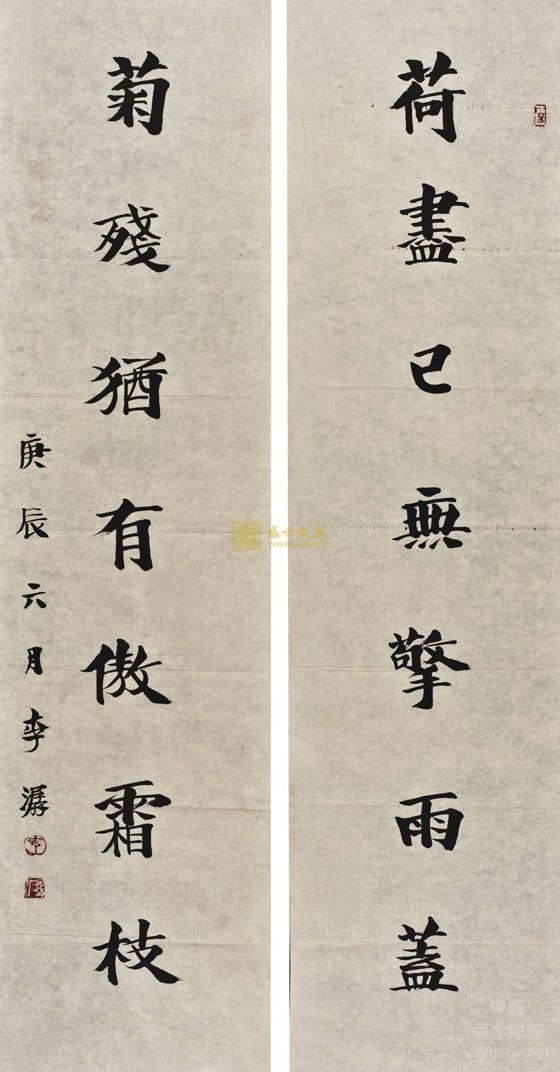 荷盡已無擎雨蓋
菊殘猶有傲霜枝
庚辰六月李潺